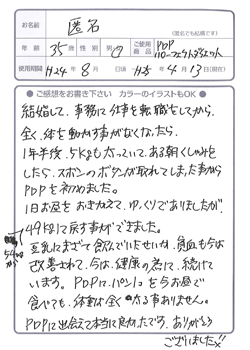 お名前 匿名
(匿名でも結構です)
年齢 35歳 性別 女 ご使用商品 PDP パーフェクトダイエット
使用期間 H24年8月 日頃~H25年4月13日(現在)
●ご感想をお書き下さい カラーのイラストもOK●
結婚して、事務に仕事を転職をしてから、
全く体を動かす事がなくなったら、
1年半後、5kgも太っていて、ある朝くしゃみを
したら、ズボンのボタンが取れてしまった事から
PDPを初めました。
1日お昼をおきかえて、ゆっくりでありましたが、
54kgから
49kgに戻す事ができました。
豆乳にまぜて飲んでいたせいか、貧血も今は
改善されて、今は、健康の為に、続けて
います。PDPに、パンを与お昼で
食べても、体重は全く太る事ありません。
PDPに出会えて本当に良かったです。ありがとう
ございました!!